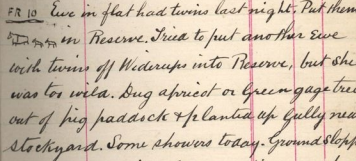 FR 10 Ewe in flat had twins last night. Put them
in Reserve. Tried to put another Ewe
with twins off Widerups into Reserve, but she
was too wild. Dug apricot or Green gage tree
out of pig paddock & planted up Gully near
stockyard. Some showers today. Ground slopp